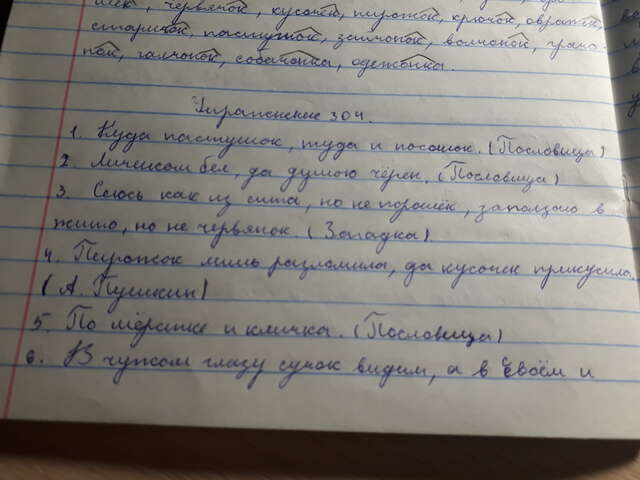 шек, червячок, кусочек, пирожок, крючок, овражек,
старичок, пастушок, зайчонок, волчонок, грачо-
нок, галчонок, собачонка, одежонка.
Упражнение 304.
1. Куда пастушок, туда и посошок. (Пословица)
2. Личиком бел, да душою чёрен. (Пословица)
3. Сеюсь как из сита, но не порошёк, заползаю в
жито, но не червячок. (Загадка)
4. Пирожок лишь разломила, да кусочек прикусила.
(А. Пушкин)
5. По шёрстке и кличка. (Пословица)
6. В чужом глазу сучок видим, а в своём и